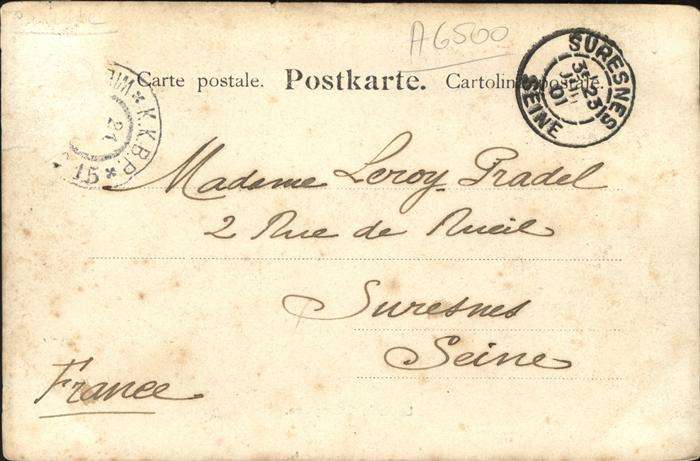 A6500
Carte postale. Postkarte. Cartolina postale.
SURESNES
SEINE
3E
23
01
K.K.B.P.
21
15
Madame Leroy-Pradel
2 Rue de Rueil
Suresnes
Seine
France